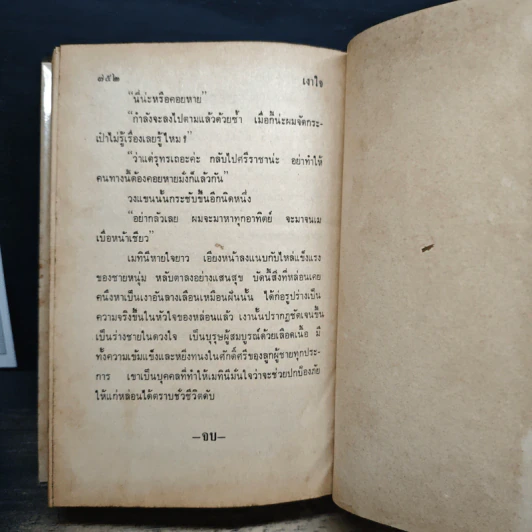 ๗๕๒ เงาใจ
“นี่น่ะหรือคอยหาย”
“กำลังจะลงไปตามแล้วด้วยซ้ำ เมื่อกี้น่ะผมจัดกระ-
เป๋าไม่รู้เรื่องเลยรู้ไหม!”
“ว่าแต่รุทรเถอะค่ะ กลับไปศรีราชาน่ะ อย่าทำให้
คนทางนี้ต้องคอยหายมั่งก็แล้วกัน”
วงแขนนั้นกระชับขึ้นอีกนิดหนึ่ง
“อย่ากลัวเลย ผมจะมาหาทุกอาทิตย์ จะมาจนเม
เบื่อหน้าเชียว”
เมทินีหายใจยาว เอียงหน้าลงแนบกับไหล่แข็งแรง
ของชายหนุ่ม หลับตาลงอย่างแสนสุข บัดนี้สิ่งที่หล่อนเคย
คนึงหาเป็นเงาอันลางเลือนเหมือนฝันนั้น ได้ก่อรูปร่างเป็น
ความจริงขึ้นในหัวใจของหล่อนแล้ว เงานั้นปรากฏชัดเจนขึ้น
เป็นร่างชายในดวงใจ เป็นบุรุษผู้สมบูรณ์ด้วยเลือดเนื้อ มี
ทั้งความเข้มแข็งและหยิ่งทนงในศักดิ์ศรีของลูกผู้ชายทุกประ-
การ เขาเป็นบุคคลที่ทำให้เมทินีมั่นใจว่าจะช่วยปกป้องภัย
ให้แก่หล่อนได้ตราบชั่วชีวิตดับ
—จบ—